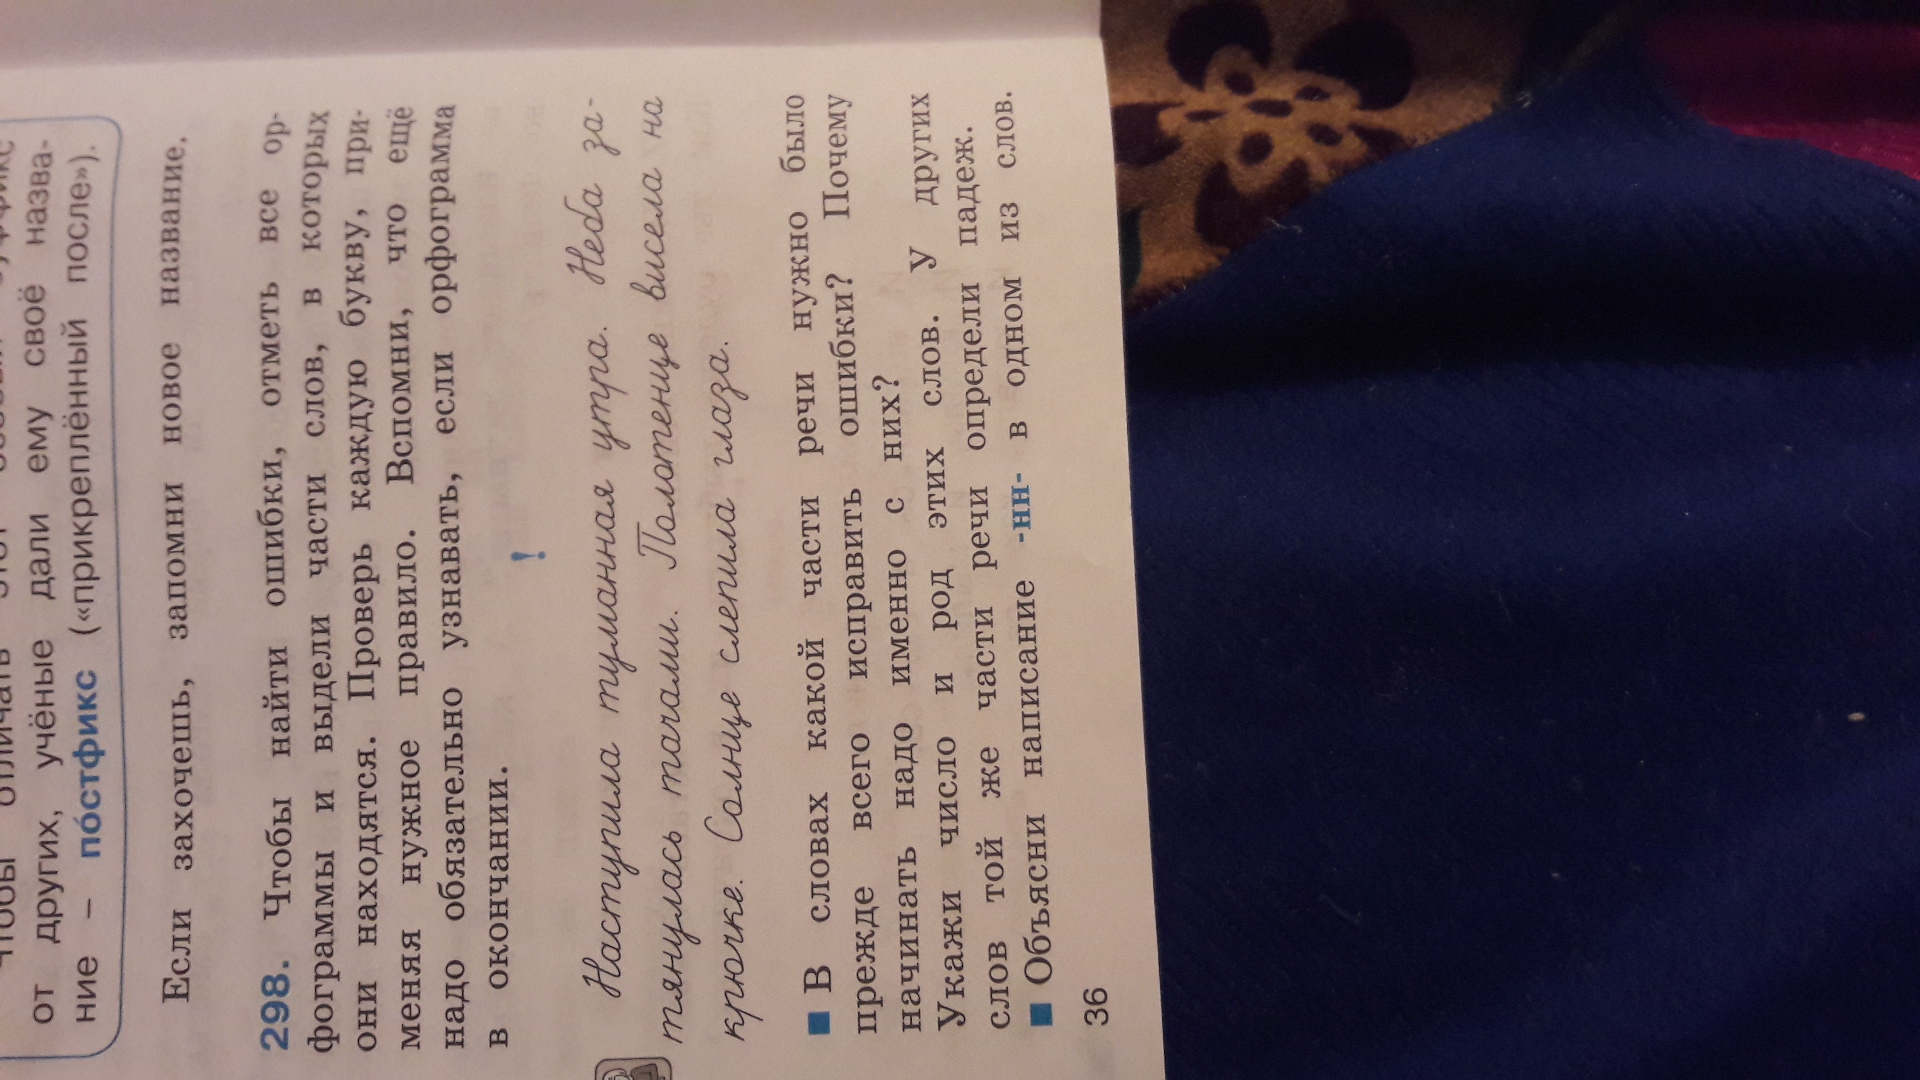 от других, учёные дали ему своё назва-
ние – по́стфикс («прикреплённый после»).
Если захочешь, запомни новое название.
298. Чтобы найти ошибки, отметь все ор-
фограммы и выдели части слов, в которых
они находятся. Проверь каждую букву, при-
меняя нужное правило. Вспомни, что ещё
надо обязательно узнавать, если орфограмма
в окончании.
!
Наступила туманная утра. Неба за-
тянулась тачами. Полотенце висела на
крючке. Солнце слепила глаза.
■ В словах какой части речи нужно было
прежде всего исправить ошибки? Почему
начинать надо именно с них?
Укажи число и род этих слов. У других
слов той же части речи определи падеж.
■ Объясни написание -нн- в одном из слов.
36